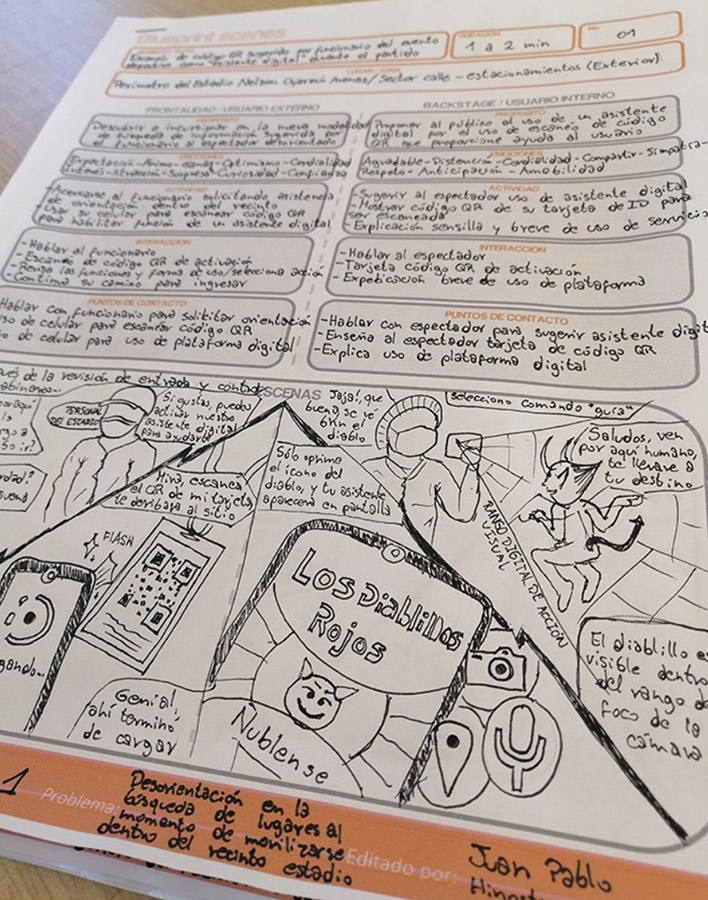 Blueprint scenes
Ejemplo de código QR sugerido por funcionario del evento
deportivo como "asistente digital" durante el partido
DURACIÓN
1 a 2 min
Nº
01
LUGAR / ZONA
Perímetro del Estadio Nelson Oyarzún Arenas/ Sector calle - estacionamientos (Exterior)
FRONTALIDAD / USUARIO EXTERNO
PROPÓSITO
Descubrir e incurrir en la nueva modalidad
de búsqueda de información sugerida por
el funcionario al espectador desorientado
EMOCIONES
Expectación-Ánimo-Ganas-Optimismo-Cordialidad
Interés-Atracción-Sorpresa-Curiosidad-Confianza
ACTIVIDAD
-Acercarse al funcionario solicitando asistencia
de orientación dentro del recinto
-Usar su celular para escanear código QR
para habilitar función de un asistente digital
INTERACCIÓN
-Hablar al funcionario
-Escaneo de código QR de activación
-Revisa las funciones y forma de uso/selecciona acción
-Continúa su camino para ingresar
PUNTOS DE CONTACTO
Hablar con funcionario para solititar orientación
uso de celular para escanear código QR
de celular para uso de plataforma digital
BACKSTAGE / USUARIO INTERNO
PROPÓSITO
Proponer al público el uso de un asistente
digital por el uso de escaneo de código
QR que proporcione ayuda al usuario
EMOCIONES
Agradable-Distención-Cordialidad-Compartir-Simpatía-
Respeto-Anticipación-Amabilidad
ACTIVIDAD
-Sugerir al espectador uso de asistente digital
-Mostrar código QR de su tarjeta de ID para
ser escaneada
-Explicación sensilla y breve de uso de servicio
INTERACCIÓN
-Hablar al espectador
-Tarjeta código QR de activación
-Expeticación breve de uso de plataforma
PUNTOS DE CONTACTO
-Hablar con espectador para sugerir asistente digit
-Enseña al espectador tarjeta de código QR
-Explica uso de plataforma digital
de la revisión de entrada y control
ESCENAS
PERSONAL
DEL ESTADIO
Si gustas, puedes
activar nuestro
asistente digital
para ayudarte
Mira, escanea
el QR de mi tarjeta,
te derivará al sitio
FLASH
Genial,
ahí termino
de cargar
Sólo oprime
el ícono del
diablo, y tu asistente
aparecerá en pantalla
Jajaj, que
buena, se ve
bkn el
diablo
Los Diablillos
Rojos
Ñublense
Selecciono comando "guía"
Saludos, ven
por aquí humano,
te llevaré a
tu destino
RANGO DIGITAL DE ACCIÓN
VISUAL
El diablillo es
visible dentro
del rango de
foco de la
cámara
1
Problema:
Desorientación en la
búsqueda de lugares al
momento de movilizarse
dentro del recinto estadio
Editado por:
Juan Pablo